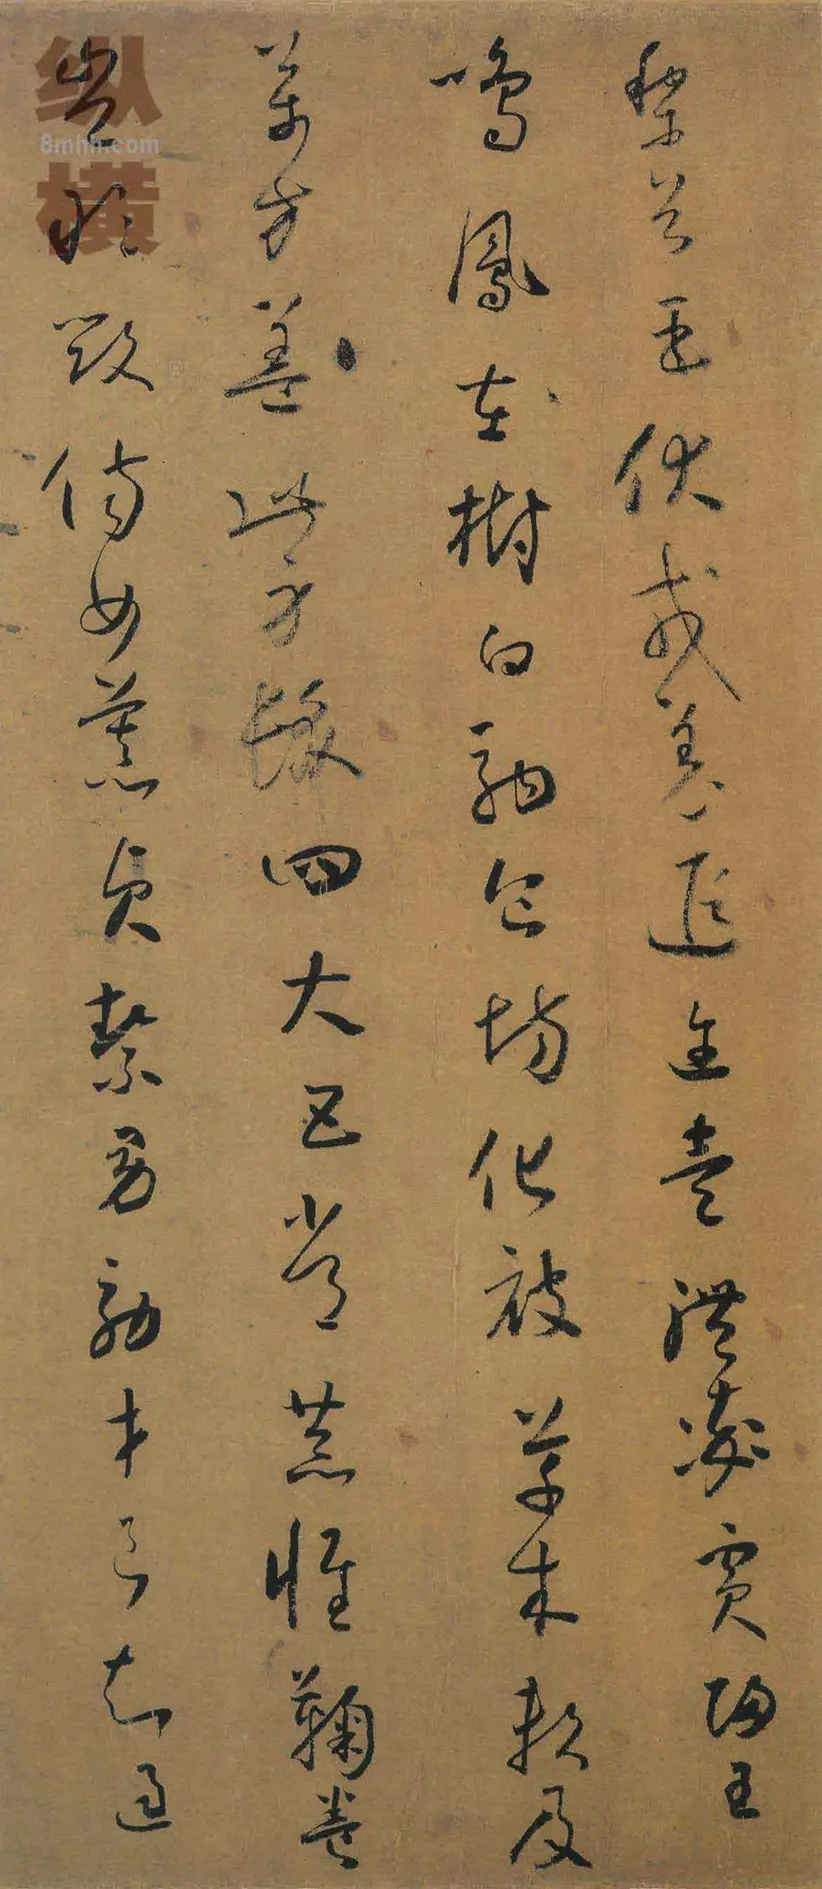 黎首臣伏戎羌遐迩壹體率賓歸王
鳴鳳在樹白駒食場化被草木賴及
萬方蓋此身髮四大五常恭惟鞠養
豈敢毀傷女慕貞絜男效才良知過
纵横
8mhh.com